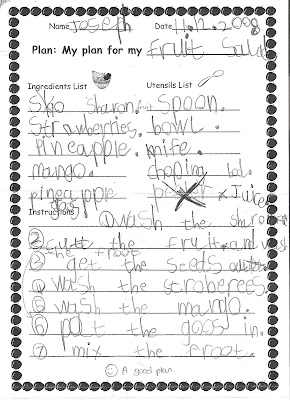 Name Joseph Date 11.12.2008
Plan: My plan for my fruit Salad
Ingredients List Utensils List
Sharon fruit Spoon.
Strawberries. bowl.
Pineapple. knife.
mango. choping
pineapple x Juice
Instructions
① wash the sharon
② cutt the fruit and
the froot
③ get the seeds
④ wash the stroberees.
⑤ wash the mango.
⑥ pot the in.
⑦ mix the froot.
A good plan